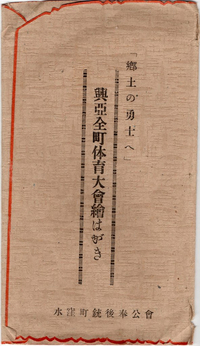 「鄕土の勇士へ」
興亞全町体育大會繪はがき
水窪町銃後奉公會